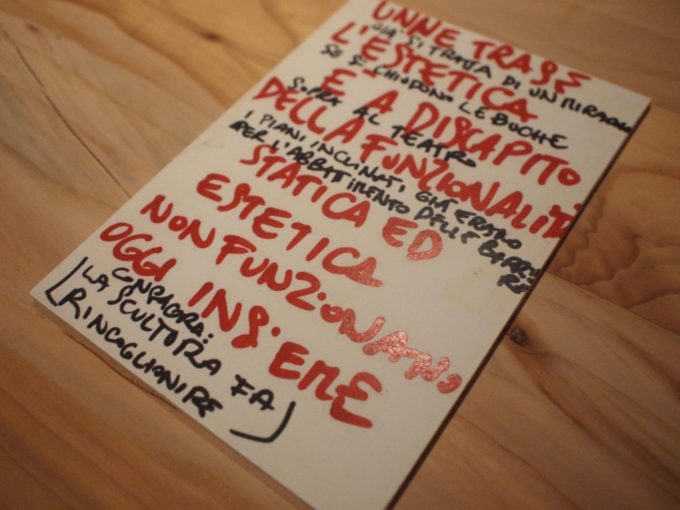 UNNE TRASE
GIÀ SI TRATTA DI UN MIRACOLO
L'ESTETICA
SE SI CHIUDONO LE BUCHE
È A DISCAPITO
SOPRA AL TEATRO
DELLA FUNZIONALITÀ
I PIANI INCLINATI, GIÀ ERANO
PER L'ABBATTIMENTO DELLE BARRIE
RE
STATICA ED
ESTETICA
NON FUNZIONANO
OGGI INSIEME
CONSAGRA:
LA SCULTURA FA
RINCOGLIONIRE